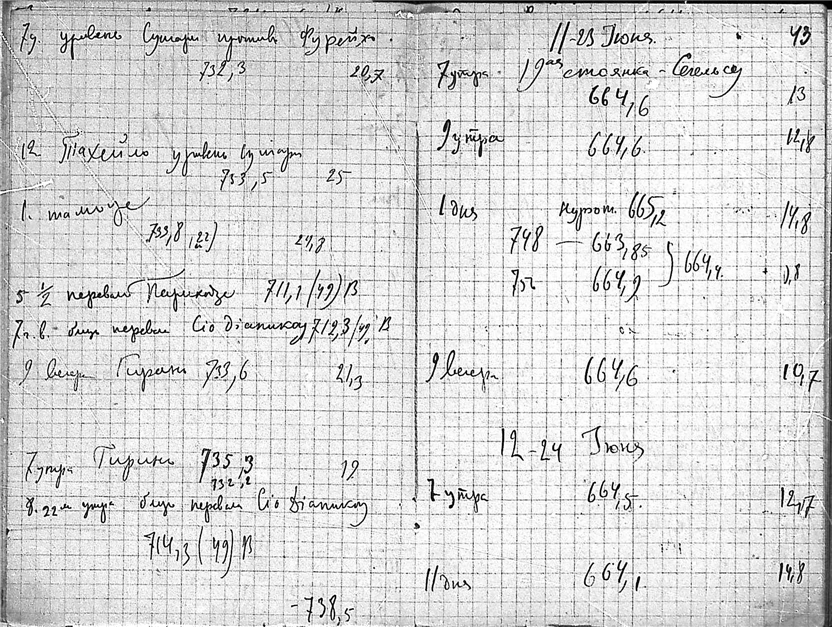 7у. уровень Сунгари против Фурейхэ.
732,3 20,7
12 уровень Сунгари
733,5 25
1. тамъ же
733,8 24,8
5 1/2 перевал 711,1 (49) В
7 ч. в. близ перевал Сіо 712,3 (49) В
9 вечера Гиринъ 733,6 21,3
7 утра Гиринъ 735,3 19
732,2
8. 22 м утра близ перевал Сіо
714,3 (49) В
-738,5
43
11-23 Іюня.
7 утра 19ая стоянка -
664,6 13
9 утра 664,6 12,8
1 дня 665,2 14,8
748 — 663,85
664,4
752 664,9
9 вечера 664,6 10,7
12-24 Іюня
7 утра 664,5. 12,7
11 дня 664,1. 14,8